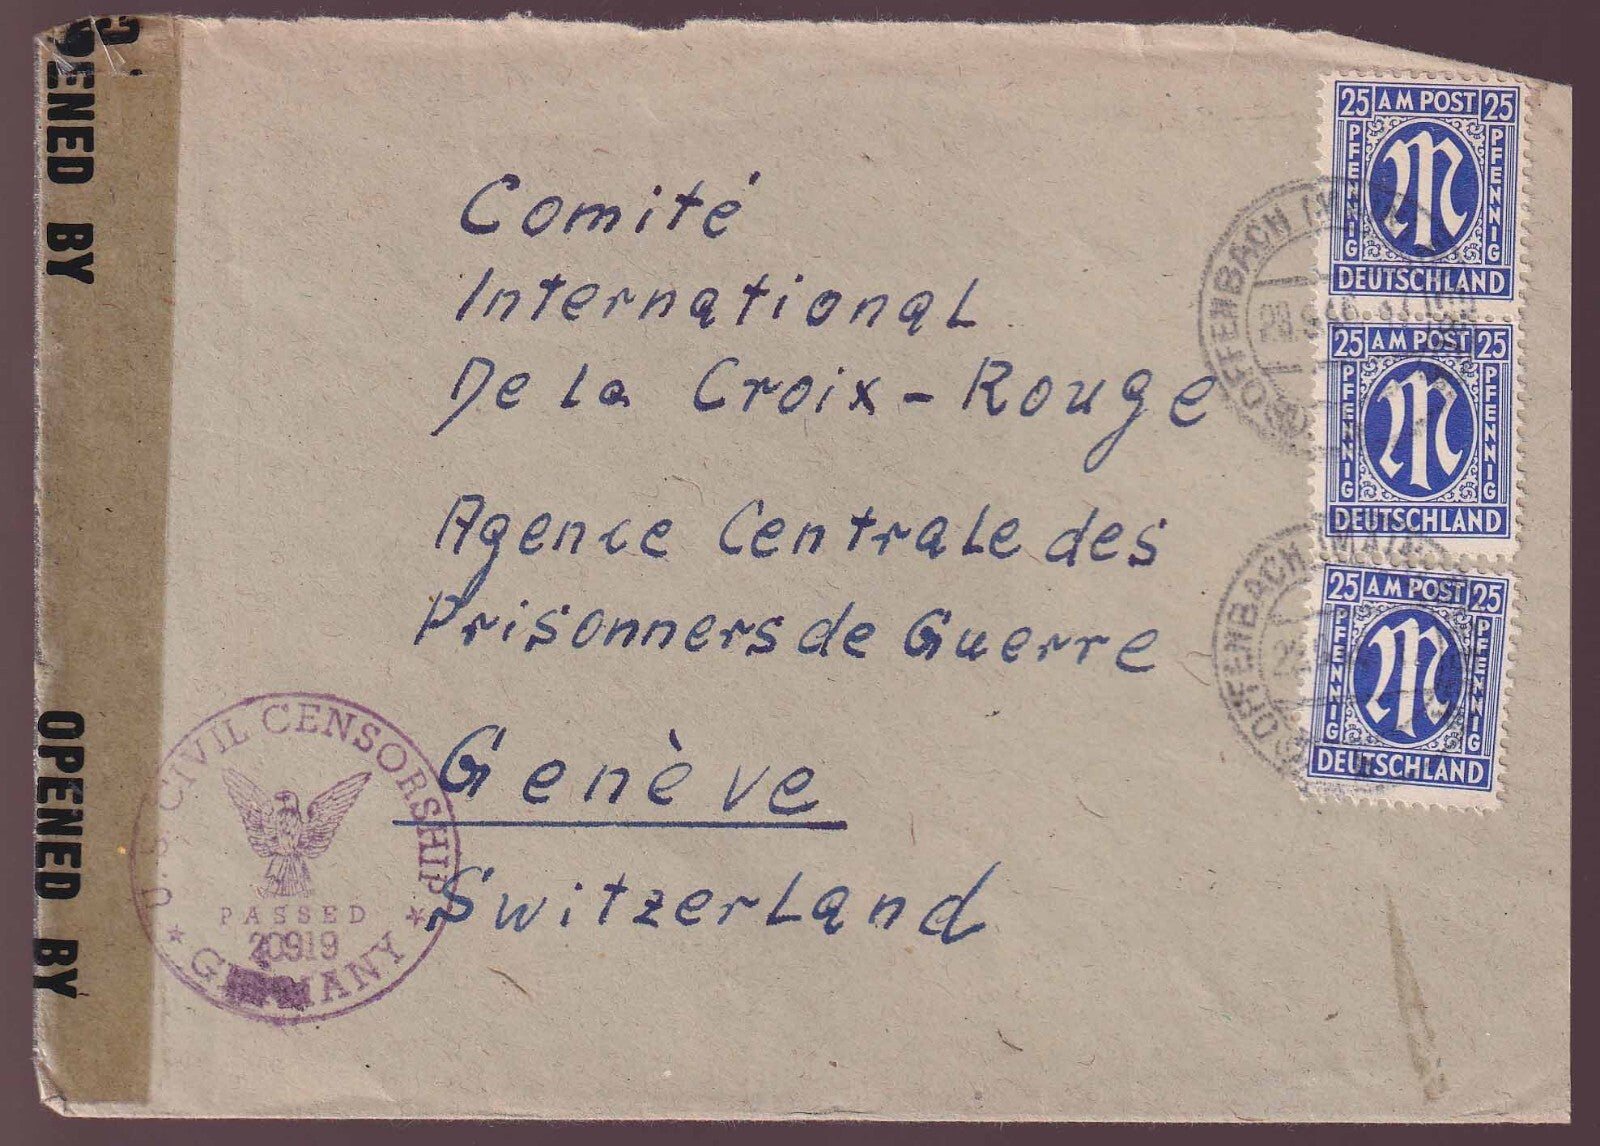 OPENED BY
OPENED BY
Comité
International
De la Croix-Rouge
Agence Centrale des
Prisonners de Guerre
Genève
Switzerland
U.S. CIVIL CENSORSHIP
PASSED
20919
* GERMANY *
25 AM POST 25
PFENNIG PFENNIG
DEUTSCHLAND
25 AM POST 25
PFENNIG PFENNIG
DEUTSCHLAND
25 AM POST 25
PFENNIG PFENNIG
DEUTSCHLAND
OFFENBACH
OFFENBACH (MAIN)